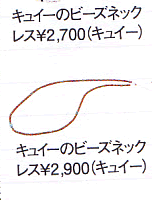 キュイーのビーズネック
レス¥2,700(キュイー)
キュイーのビーズネック
レス¥2,900(キュイー)